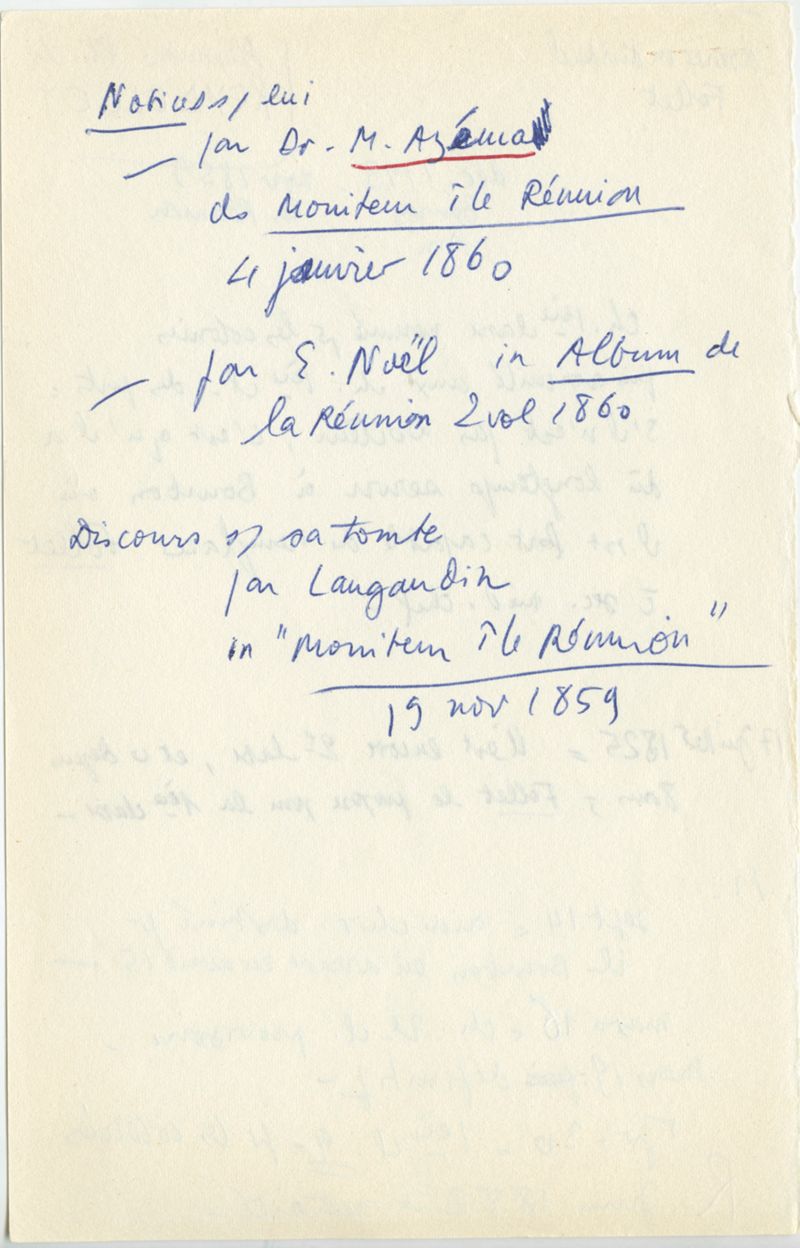 Notices s/ lui
par Dr. M. Azéma
ds Moniteur île Réunion
4 janvier 1860
par E. Noël in Album de
la Réunion 2 vol 1860
Discours s/ sa tombe
par Laugaudin
in "Moniteur île Réunion"
19 nov 1859